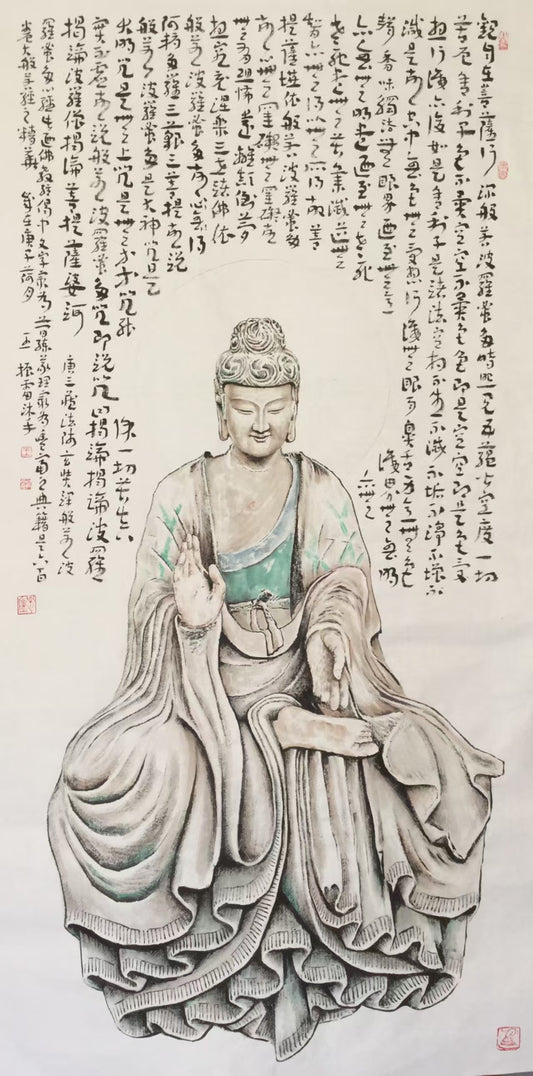 觀自在菩薩行深般若波羅蜜多時照見五蘊皆空度一切
苦厄舍利子色不異空空不異色色即是空空即是色受
想行識亦復如是舍利子是諸法空相不生不滅不垢不淨不增不
減是故空中無色無受想行識無眼耳鼻舌身意無色
聲香味觸法無眼界乃至無意
識界無無明
亦無
亦無無明盡乃至無老死
老死盡無苦集滅道無
智亦無得以無所得故菩
提薩埵依般若波羅蜜多
故心無罣礙無罣礙故
無有恐怖遠離顛倒夢
想究竟涅槃三世諸佛依
般若波羅蜜多故得
阿耨多羅三藐三菩提故知
般若波羅蜜多是大神咒是
大明咒是無上咒是無等等咒能
除一切苦真
實不虛故說般若波羅蜜多咒即說咒曰揭諦揭諦波羅
揭諦波羅僧揭諦菩提薩婆訶
唐三藏法師玄奘譯般若波
羅蜜多心經 佛教經 中文字最為 為 富之典籍是六百
卷大般若經之精華 歲在庚子荷月 王振 沐手